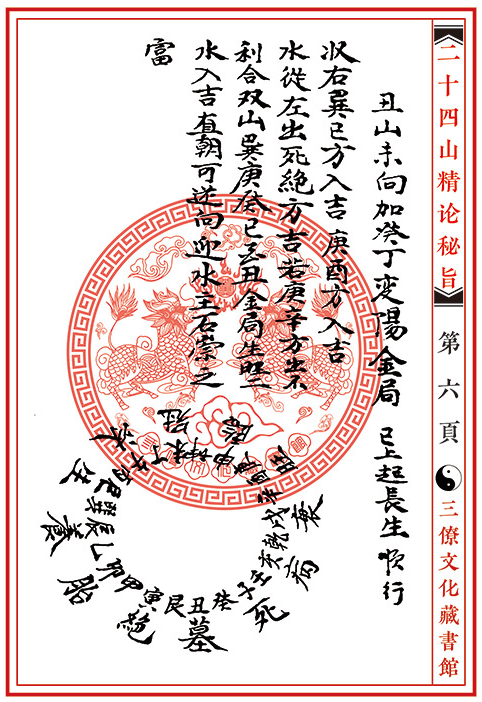 二十四山精论秘旨
第六頁
三僚文化藏書館
丑山未向加癸丁变陽金局 巳上起長生順行
収右巽巳方入吉庚酉方入吉
水從左出死絕方吉若庚辛方出不
利合双山巽庚癸巳酉丑金局生旺
水入吉直朝可逆向迎水主石崇之
富
丁未坤申庚酉辛戌乾亥壬子癸丑艮寅甲卯乙辰巽巳丙午
冠
臨
旺
衰
病
死
墓
絕
胎
養
生
沐